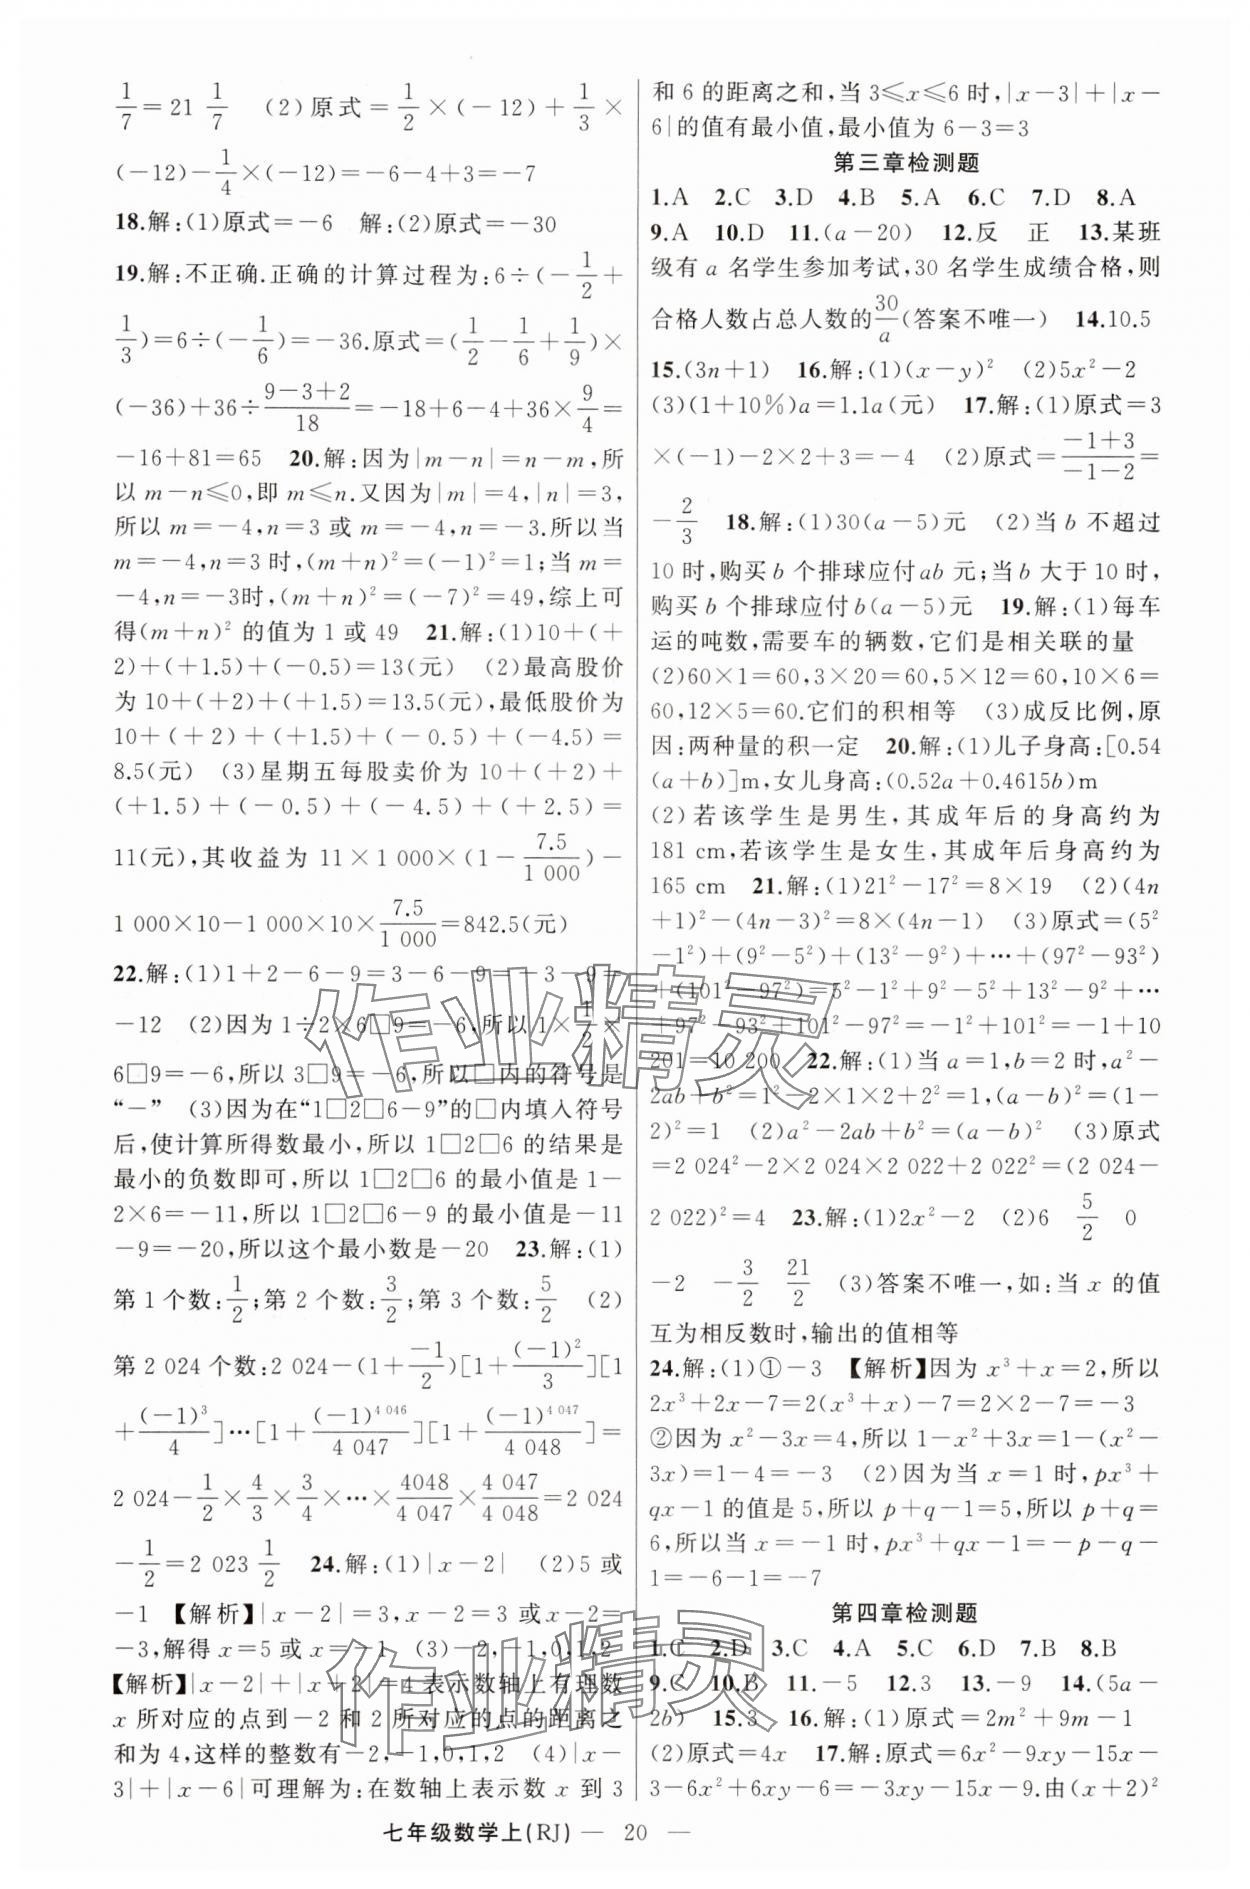 1/7＝21 1/7　(2)原式＝1/2×(－12)＋1/3×
(－12)－1/4×(－12)＝－6－4＋3＝－7
18.解:(1)原式＝－6　解:(2)原式＝－30
19.解:不正确.正确的计算过程为:6÷(－1/2＋
1/3)＝6÷(－1/6)＝－36.原式＝(1/2－1/6＋1/9)×
(－36)＋36÷(9－3＋2)/18＝－18＋6－4＋36×9/4＝
－16＋81＝65　20.解:因为|m－n|＝n－m,所
以 m－n≤0,即 m≤n.又因为|m|＝4,|n|＝3,
所以 m＝－4,n＝3 或 m＝－4,n＝－3.所以当
m＝－4,n＝3 时,(m＋n)²＝(－1)²＝1;当 m＝
－4,n＝－3时,(m＋n)²＝(－7)²＝49,综上可
得(m＋n)² 的值为 1 或 49　21.解:(1)10＋(＋
2)＋(＋1.5)＋(－0.5)＝13(元)　(2)最高股价
为 10＋(＋2)＋(＋1.5)＝13.5(元),最低股价为
10＋(＋2)＋(＋1.5)＋(－0.5)＋(－4.5)＝
8.5(元)　(3)星期五每股卖价为 10＋(＋2)＋
(＋1.5)＋(－0.5)＋(－4.5)＋(＋2.5)＝
11(元),其收益为 11×1 000×(1－7.5/1 000)－
1 000×10－1 000×10×7.5/1 000＝842.5(元)
22.解:(1)1＋2－6－9＝3－6－9＝－3－9＝
－12　(2)因为 1÷2×6□9＝－6,所以 1×1/2×
6□9＝－6,所以 3□9＝－6,所以□内的符号是
“－”　(3)因为在“1□2□6－9”的□内填入符号
后,使计算所得数最小,所以 1□2□6 的结果是
最小的负数即可,所以 1□2□6 的最小值是 1－
2×6＝－11,所以 1□2□6－9 的最小值是－11
－9＝－20,所以这个最小数是－20　23.解:(1)
第 1 个数:1/2;第 2 个数:3/2;第 3 个数:5/2　(2)
第 2 024 个数:2 024－(1＋－1/2)[1＋(－1)²/3][1
＋(－1)³/4]…[1＋(－1)⁴ ⁰⁴⁶/4 047][1＋(－1)⁴ ⁰⁴⁷/4 048]＝
2 024－1/2×4/3×3/4×…×4048/4 047×4 047/4 048＝2 024
－1/2＝2 023 1/2　24.解:(1)|x－2|　(2)5 或
－1 【解析】|x－2|＝3,x－2＝3 或 x－2＝
－3,解得 x＝5 或 x＝－1　(3)－2,－1,0,1,2
【解析】|x－2|＋|x＋2|＝4 表示数轴上有理数
x 所对应的点到－2 和 2 所对应的点的距离之
和为 4,这样的整数有－2,－1,0,1,2　(4)|x－
3|＋|x－6|可理解为:在数轴上表示数 x 到 3
和 6 的距离之和,当 3≤x≤6 时,|x－3|＋|x－
6|的值有最小值,最小值为 6－3＝3
第三章检测题
1.A　2.C　3.D　4.B　5.A　6.C　7.D　8.A
9.A　10.D　11.(a－20)　12.反　正　13.某班
级有 a 名学生参加考试,30 名学生成绩合格,则
合格人数占总人数的30/a(答案不唯一)　14.10.5
15.(3n＋1)　16.解:(1)(x－y)²　(2)5x²－2
(3)(1＋10%)a＝1.1a(元)　17.解:(1)原式＝3
×(－1)－2×2＋3＝－4　(2)原式＝(－1＋3)/(－1－2)＝
－2/3　18.解:(1)30(a－5)元　(2)当 b 不超过
10 时,购买 b 个排球应付 ab 元;当 b 大于 10 时,
购买 b 个排球应付 b(a－5)元　19.解:(1)每车
运的吨数,需要车的辆数,它们是相关联的量
(2)60×1＝60,3×20＝60,5×12＝60,10×6＝
60,12×5＝60.它们的积相等　(3)成反比例,原
因:两种量的积一定　20.解:(1)儿子身高:[0.54
(a＋b)]m,女儿身高:(0.52a＋0.4615b)m
(2)若该学生是男生,其成年后的身高约为
181 cm,若该学生是女生,其成年后身高约为
165 cm　21.解:(1)21²－17²＝8×19　(2)(4n
＋1)²－(4n－3)²＝8×(4n－1)　(3)原式＝(5²
－1²)＋(9²－5²)＋(13²－9²)＋…＋(97²－93²)
＋(101²－97²)＝5²－1²＋9²－5²＋13²－9²＋…
＋97²－93²＋101²－97²＝－1²＋101²＝－1＋10
201＝10 200　22.解:(1)当 a＝1,b＝2 时,a²－
2ab＋b²＝1²－2×1×2＋2²＝1,(a－b)²＝(1－
2)²＝1　(2)a²－2ab＋b²＝(a－b)²　(3)原式
＝2 024²－2×2 024×2 022＋2 022²＝(2 024－
2 022)²＝4　23.解:(1)2x²－2　(2)6　5/2　0
－2　－3/2　21/2　(3)答案不唯一,如:当 x 的值
互为相反数时,输出的值相等
24.解:(1)①－3 【解析】因为 x³＋x＝2,所以
2x³＋2x－7＝2(x³＋x)－7＝2×2－7＝－3
②因为 x²－3x＝4,所以 1－x²＋3x＝1－(x²－
3x)＝1－4＝－3　(2)因为当 x＝1 时,px³＋
qx－1 的值是 5,所以 p＋q－1＝5,所以 p＋q＝
6,所以当 x＝－1 时,px³＋qx－1＝－p－q－
1＝－6－1＝－7
第四章检测题
1.C　2.D　3.C　4.A　5.C　6.D　7.B　8.B
9.C　10.B　11.－5　12.3　13.－9　14.(5a－
2b)　15.3　16.解:(1)原式＝2m²＋9m－1
(2)原式＝4x　17.解:原式＝6x²－9xy－15x－
3－6x²＋6xy－6＝－3xy－15x－9.由(x＋2)²
七年级数学上(RJ)　—　20　—
作业精灵
作业精灵